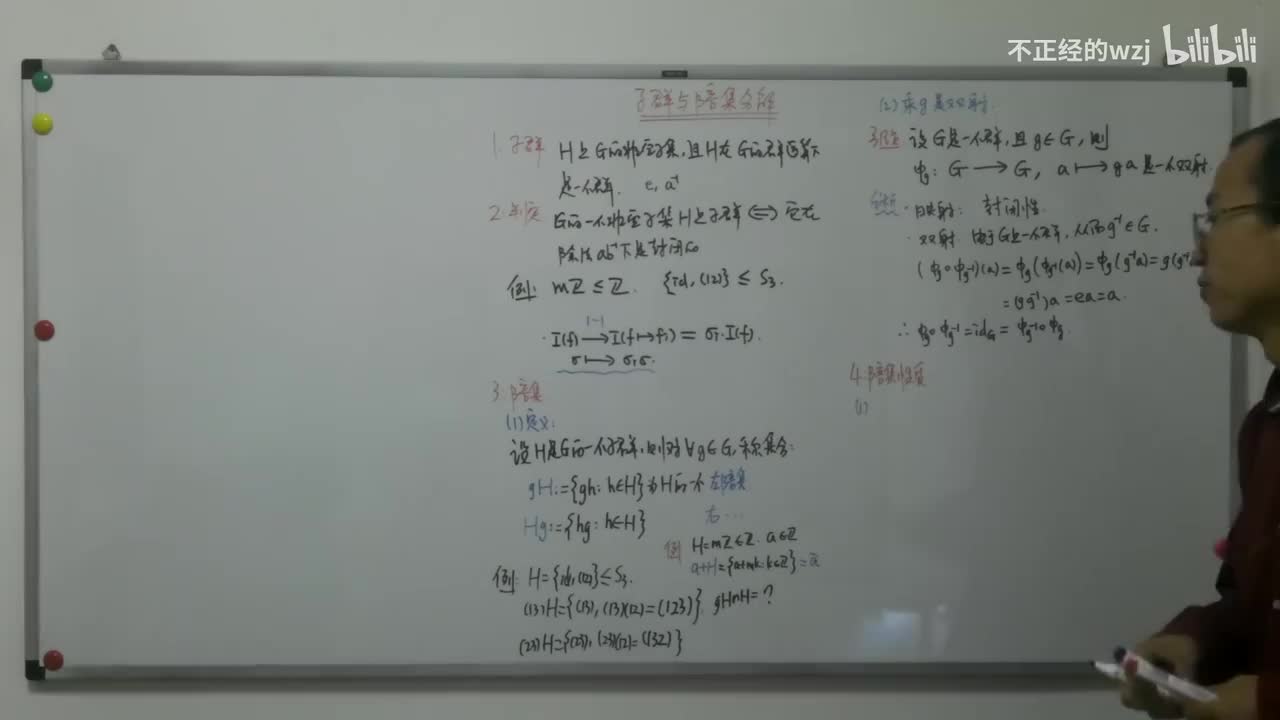 不正经的wzj bilibili
子群与陪集分解
1. 子群 H是G的非空子集,且H在G的群运算下
是一个群. e, a⁻¹
2. 判定 G的一个非空子集H是子群 ⟺ 它在
除法ab⁻¹下是封闭的
例: mℤ ≤ ℤ. {id, (12)} ≤ S₃.
· I(f) ⟶ I(f↦f₁) = σ₁·I(f).
1-1
σ ⟼ σ₁σ.
3. 陪集
(1) 定义:
设H是G的一个子群,则对∀g∈G,称集合:
gH:={gh: h∈H}为H的一个左陪集
Hg:={hg: h∈H} 右…
例 H=mℤ≤ℤ. a∈ℤ
a+H={a+mk: k∈ℤ}=ā
例: H={id,(12)}≤S₃.
(13)H={(13), (13)(12)=(123)}. gH∩H=?
(23)H={(23), (23)(12)=(132)}
(2) 乘g是双射.
引理 设G是一个群,且g∈G,则
φg: G ⟶ G, a ⟼ ga 是一个双射.
· 映射: 封闭性.
· 双射. 由于G是一个群,从而g⁻¹∈G.
(φg∘φg⁻¹)(a)=φg(φg⁻¹(a))=φg(g⁻¹a)=g(g⁻¹
=(gg⁻¹)a=ea=a.
∴ φg∘φg⁻¹=idG=φg⁻¹∘φg.
4. 陪集性质
(1)